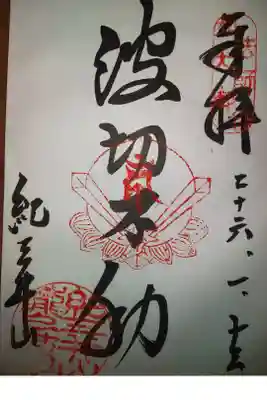 奉拝
二十六、一、
波切不動
紀三井山